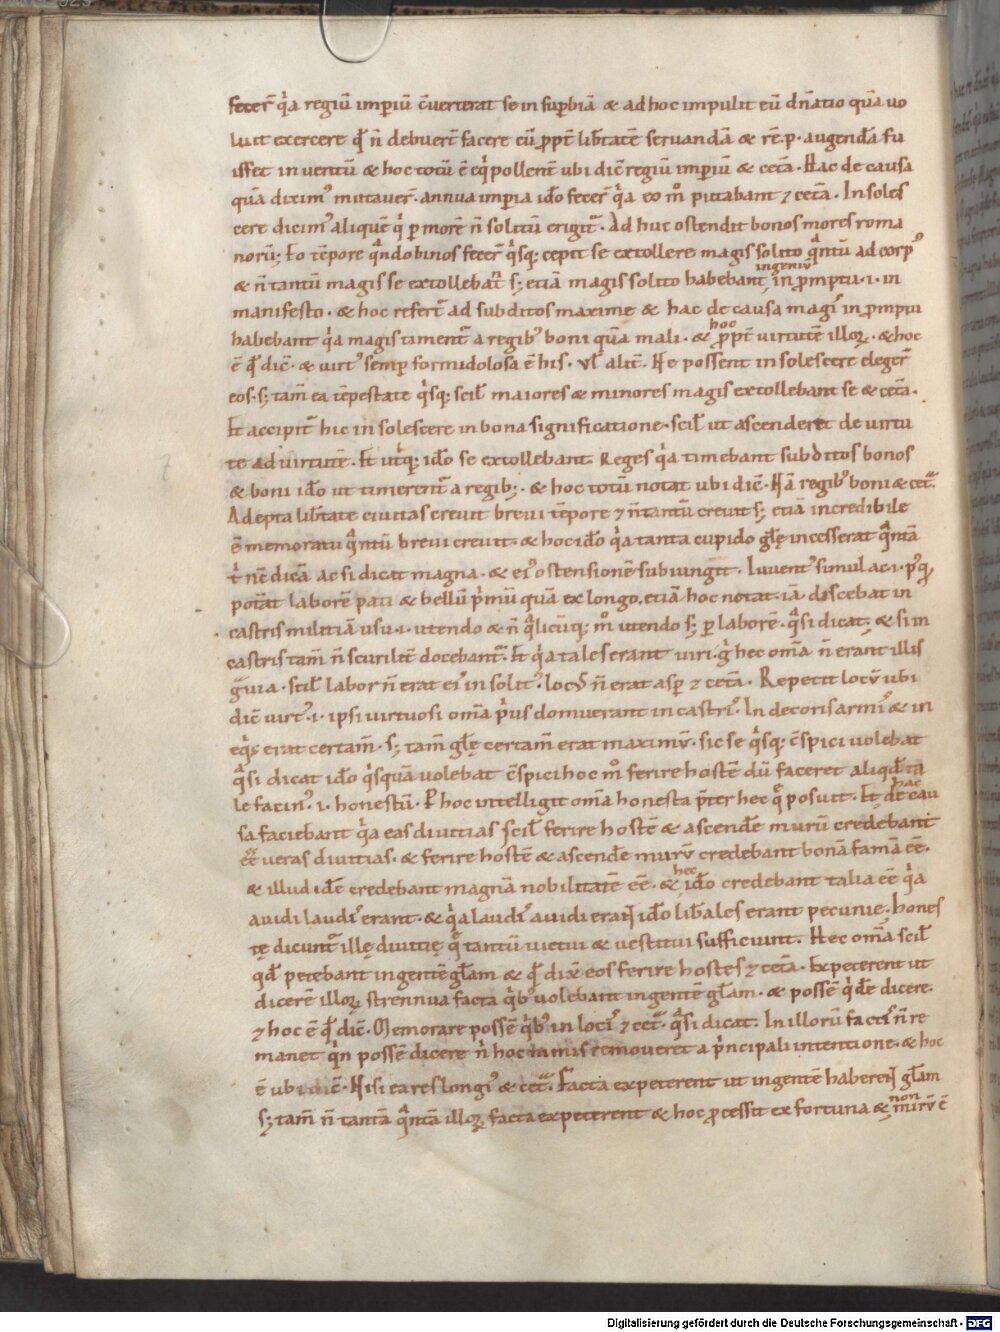 fecer̄ q̓a regiū imꝑiū c̄verterat se in suꝑbiā & ad hoc impulit eū dn̄atio quā uo
luit exercere qđ n̄ debuer̄t facere cū ꝓpt̄ lib̄tatē servandā & rē.p. augendā fu
isset inventū & hoc totū ē eq̓pollent̄ ubi dic̄ regiū imꝑiū & cet̄a. Hac de causa
quā diximꝰ mutauer̄. annua imꝑia iđo fecer̄ q̓a eo m̊ putabant ⁊ cet̄a. Insoles
cere dicimꝰ aliquē q̓ ꝑ morē n̄ solitū erigit᷑. Ad huc ostendit bonos mores roma
norū; Eo tēpore qͣndo binos fecer̄ q̓sq; cepit se extollere magis solito qͣntū ad corpꝰ
& n̄ tantū magis se extollebat᷑ s; etiā magis solito habebant ingeniū in ꝓmptu .i. in
manifesto. & hoc refert᷑ ad subditos maxime & hac de causa magꝭ in ꝓmptu
habebant q̓a magis timent᷑ a regibꝰ boni quā mali. & hoc ꝓpt̄ virtutē illoꝝ. & hoc
ē qđ dic̄. & virtꝰ semꝑ formidolosa ē his. vƚ alit̄. Ne possent insolescere eleger̄
eos. s; tam̄ ea tēpestate q̓sq; sciƚ maiores & minores magis extollebant se & cet̄a.
Et accipit᷑ hic insolescere in bona significatione. sciƚ ut ascenderet de virtu
te ad virtutē. Et utq̓; iđo se extollebant Reges q̓a timebant subditos bonos
& boni iđo ut timerent᷑ a regibꝰ; & hoc totū notat ubi dic̄. Nā regibꝰ boni & cet᷑.
Adepta lib̄tate civitas crevit brevi tēpore ⁊ n̄ tantū crevit s; etiā incredibile
ē memoratu qͣntū brevi crevit. & hoc iđo q̓a tanta cupido gƚę incesserat qͣntā
ac si dicat magna. & eiꝰ ostensionē subiungit. Iuventꝰ simul ac .i. pꝰq̄
poīat laborē pati & bellū p̓mū quā ex longo. etiā hoc notat. iā discebat in
castris militiā usu .i. utendo & n̄ qͣlicūq; m̊ utendo s; ꝑ laborē. qͣsi dicat. & si in
castris tam̄ n̄ scurilit̄ docebant᷑. Et q̓a tales erant viri. g̓ hec om̄ia n̄ erant illis
gͣvia. sciƚ labor n̄ erat eiꝭ insolitꝰ. locꝰ n̄ erat asꝑ ⁊ cet̄a. Repetit locū ubi
dic̄ virtꝰ .i. ipsi virtuosi om̄ia p̓us domuerant in castrꝭ. In decoris armꝭ & in
eq̓s erat certam̄. s; tam̄ gƚę certam̄ erat maximū. sic se q̓sq; c̄spici volebat
qͣsi dicat iđo q̓squā volebat c̄spici hoc m̊ ferire hostē dū faceret aliqđ ta
le facinꝰ .i. honestū. P hoc intelligit om̄ia honesta p̄ter hec q̄ posuit. Et de hac cau
sa faciebant q̓a eas divitias sciƚ ferire hostē & ascenđe murū credebant
ēē veras divitias. & ferire hostē & ascenđe murū credebant bonā famā ēē.
& illud iđē credebant magnā nobilitatē ēē. & hec iđo credebant talia ēē q̓a
avidi laudꝭ erant. & q̓a laudꝭ avidi erant iđo lib̄ales erant pecunie. hones
tę dicunt᷑ illę divitię q̄ tantū victui & vestitui sufficiunt. Hec om̄ia sciƚ
qđ petebant ingentē gƚam & qđ dix̄ eos ferire hostes ⁊ cet̄a. Expeterent ut
dicerē illoꝝ strennua facta q̓bꝰ volebant ingentē gƚam. & possē q̓dē dicere.
⁊ hoc ē qđ dic̄. Memorare possē q̓bꝰ in locꝭ ⁊ cet᷑. qͣsi dicat. In illorū factꝭ n̄ re
manet q̓n possē dicere n̓ hoc tam̄ removeret a p̓ncipali intentione. & hoc
ē ubi dic̄. Nisi ea res longꝰ & cet᷑. Facta expeterent ut ingentē haberent gƚam
s; tam̄ n̄ tantā qͣntā illoꝝ facta expeterent & hoc ꝓcessit ex fortuna & non mirū ē
Digitalisierung gefördert durch die Deutsche Forschungsgemeinschaft - DFG